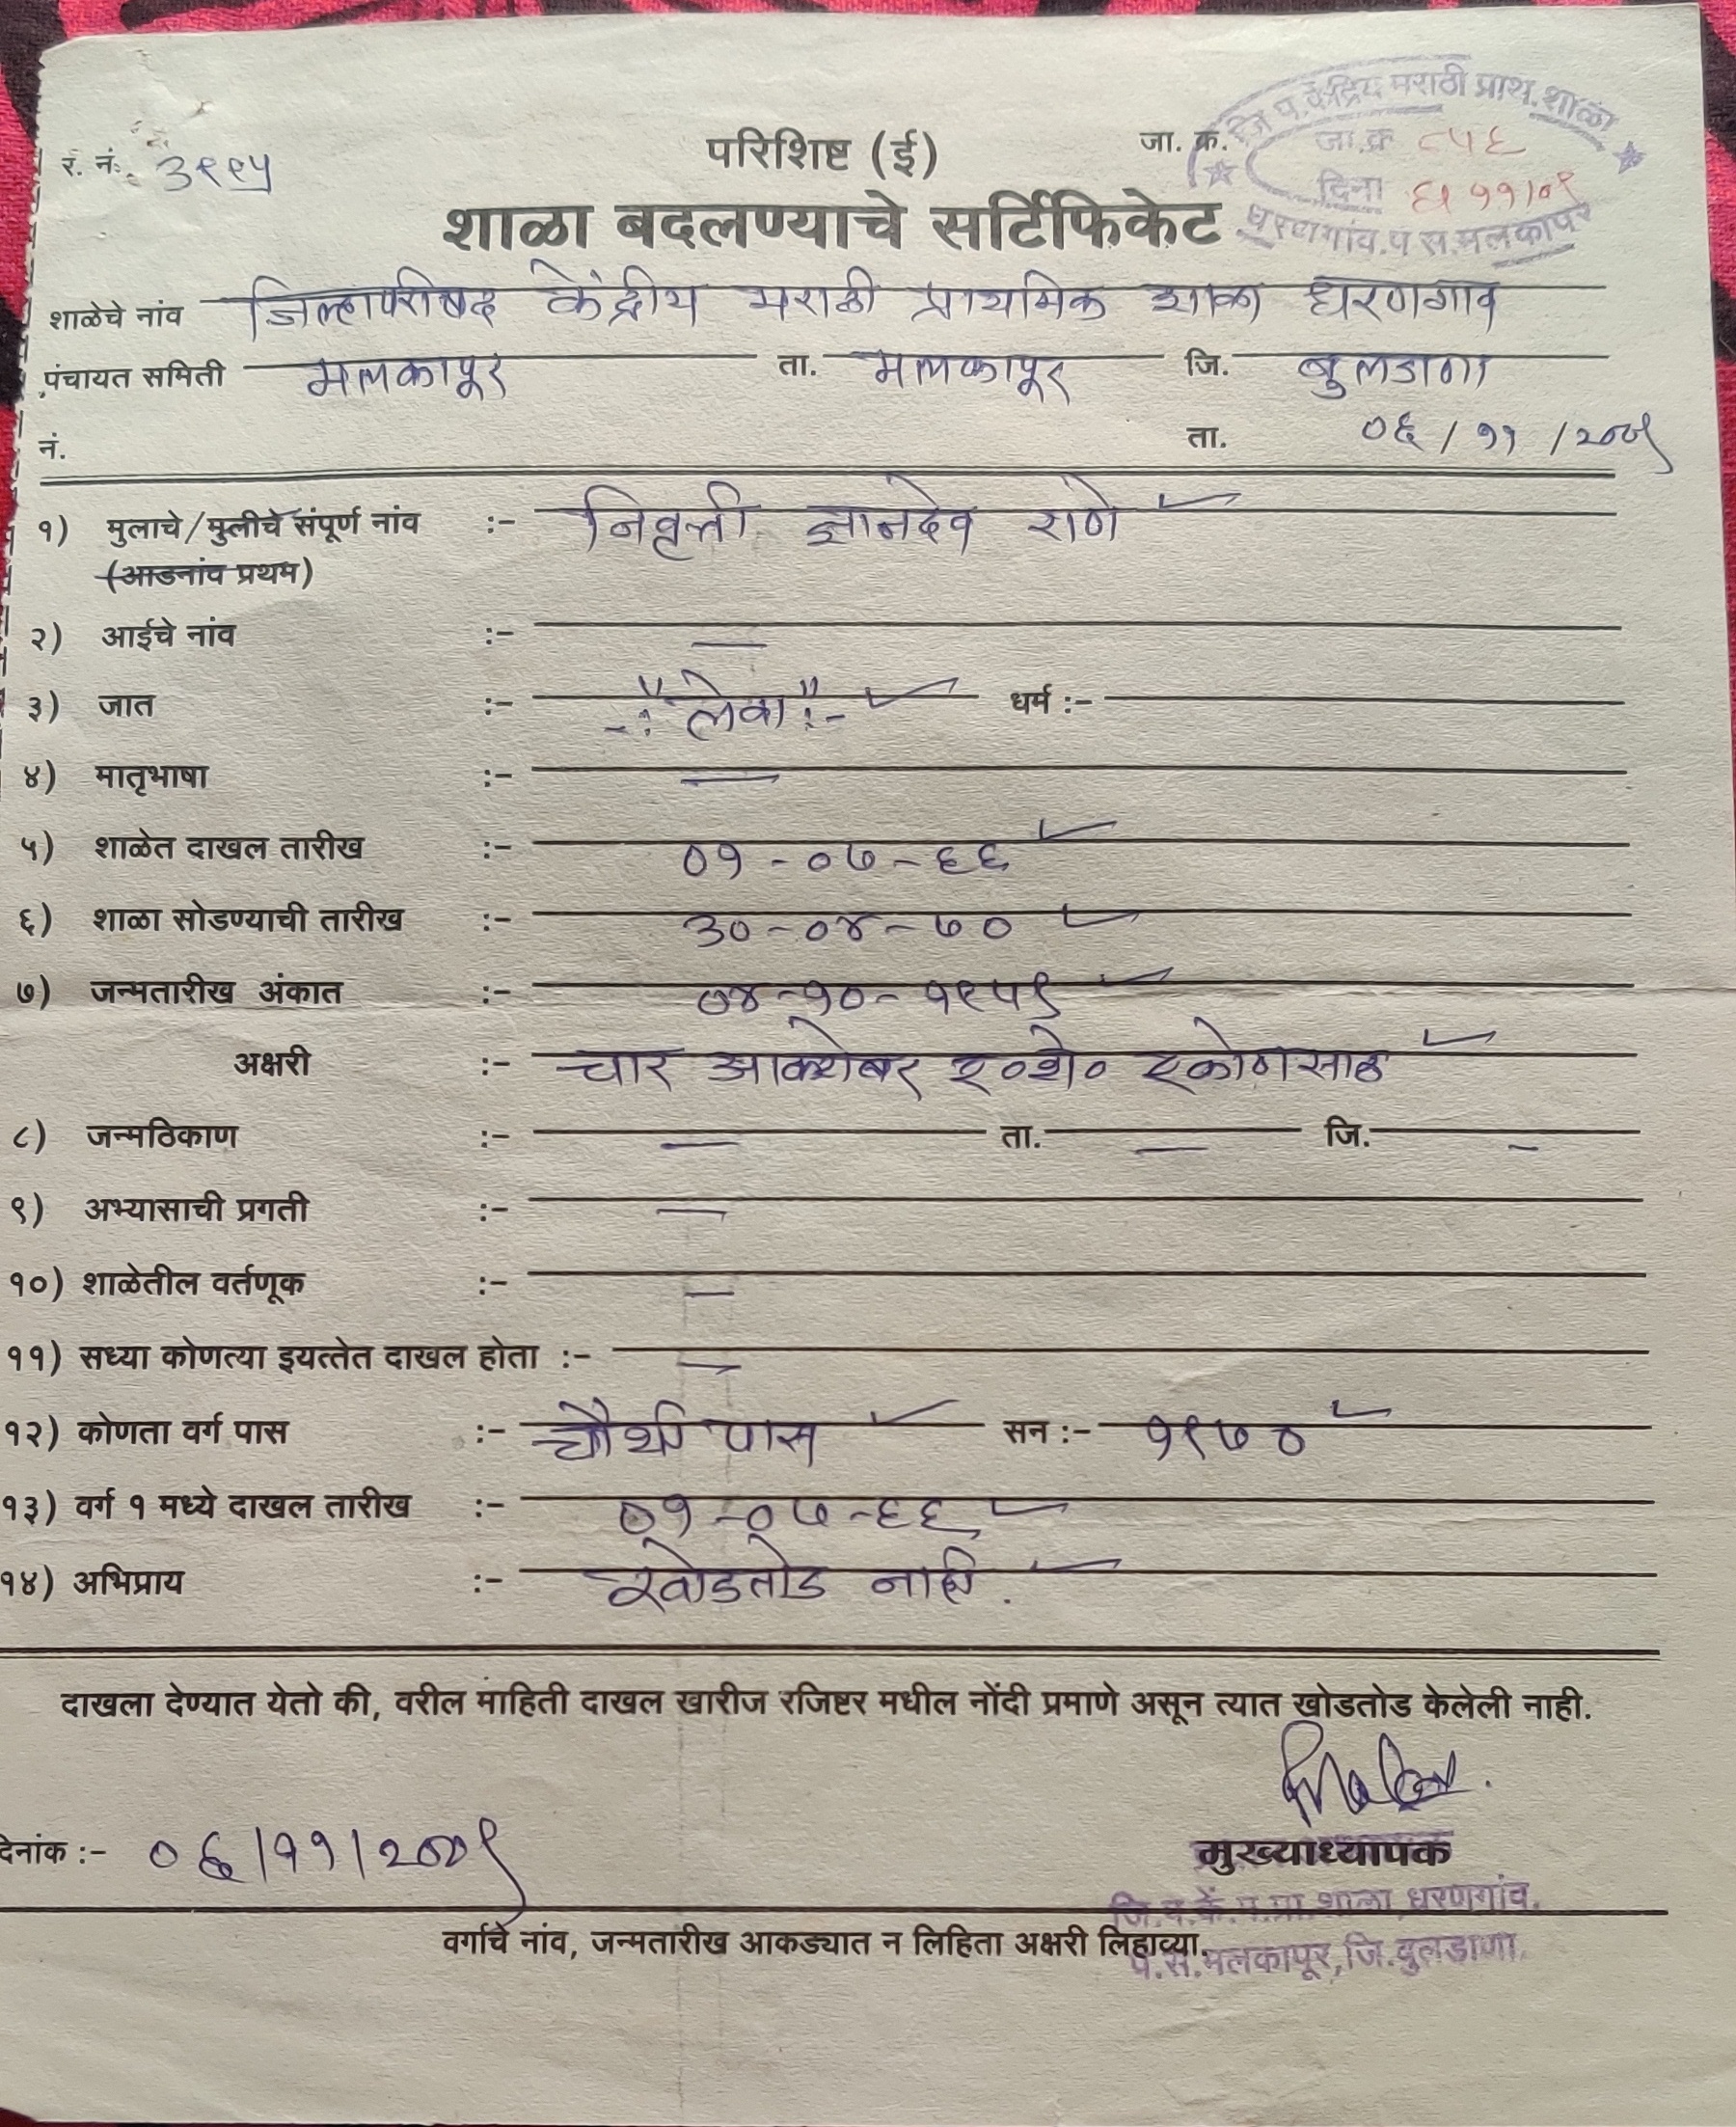 जि.प.केंद्रिय मराठी प्राथ.शाळा
परिशिष्ट (ई)
जा. क्र.
जा.क्र ८५६
र. नं.
दिना ६/११/०९
धरणगांव.प.स.मलकापूर
शाळा बदलण्याचे सर्टिफिकेट
शाळेचे नांव जिल्हापरीषद केंद्रीय मराठी प्राथमिक शाळा धरणगाव
पंचायत समिती मलकापूर ता. मलकापूर जि. बुलडाणा
नं. ता. ०६/११/२००९
१) मुलाचे/मुलीचे संपूर्ण नांव :- निवृत्ती ज्ञानदेव राणे
(आडनांव प्रथम)
२) आईचे नांव :- —
३) जात :- -:"लेवा":- धर्म :-
४) मातृभाषा :- —
५) शाळेत दाखल तारीख :- ०१-०७-६६
६) शाळा सोडण्याची तारीख :- ३०-०४-७०
७) जन्मतारीख अंकात :- ०४-१०-१९५९
अक्षरी :- चार आक्टोबर ए०शे० एकोणसाठ
८) जन्मठिकाण :- — ता. — जि. -
९) अभ्यासाची प्रगती :- —
१०) शाळेतील वर्तणूक :- —
११) सध्या कोणत्या इयत्तेत दाखल होता :- —
१२) कोणता वर्ग पास :- चौथी पास सन :- १९७०
१३) वर्ग १ मध्ये दाखल तारीख :- ०१-०७-६६
१४) अभिप्राय :- खोडतोड नाही.
दाखला देण्यात येतो की, वरील माहिती दाखल खारीज रजिष्टर मधील नोंदी प्रमाणे असून त्यात खोडतोड केलेली नाही.
दिनांक :- ०६/११/२००९
मुख्याध्यापक
जि.प.कें.म.प्रा.शाला धरणगांव.
वर्गाचे नांव, जन्मतारीख आकड्यात न लिहिता अक्षरी लिहाव्या.
प.स.मलकापूर,जि.बुलडाणा.